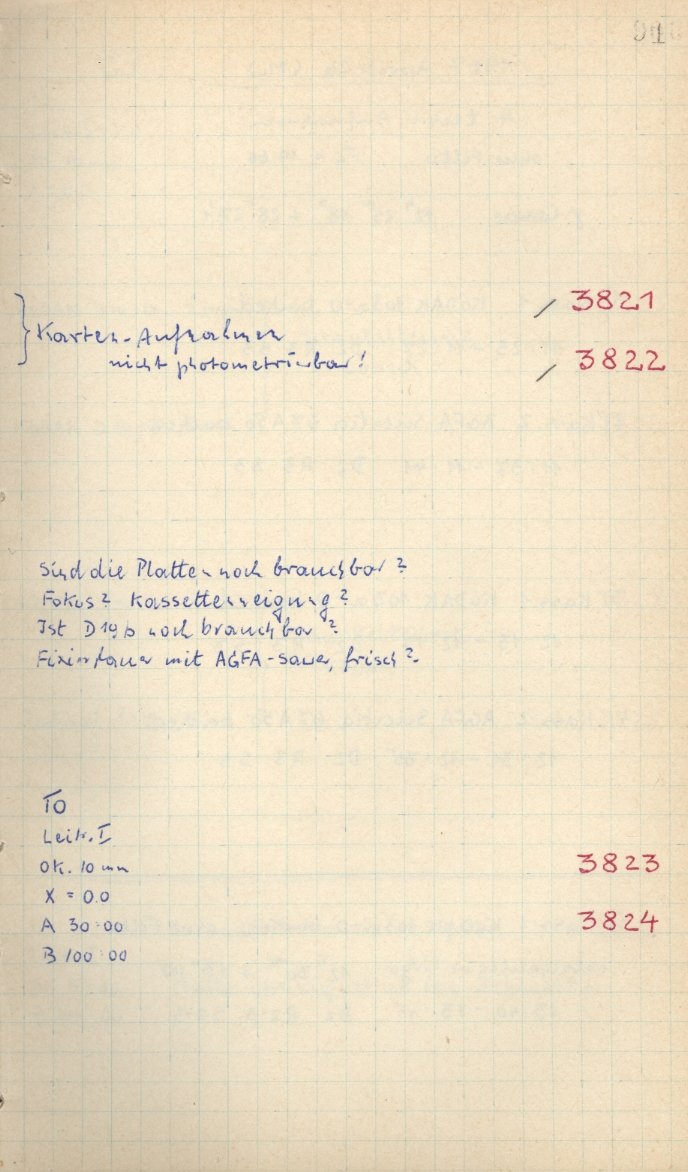 91
/ 3821
Karten-Aufnahmen
nicht photometrierbar!
/ 3822
Sind die Platten noch brauchbar?
Fokus? Kassettenneigung?
Ist D19b noch brauchbar?
Fixierdauer mit AGFA-sauer, frisch?
TO
Leitr. I
Ok. 10 mm
3823
X = 0.0
A 30.00
3824
B 100.00